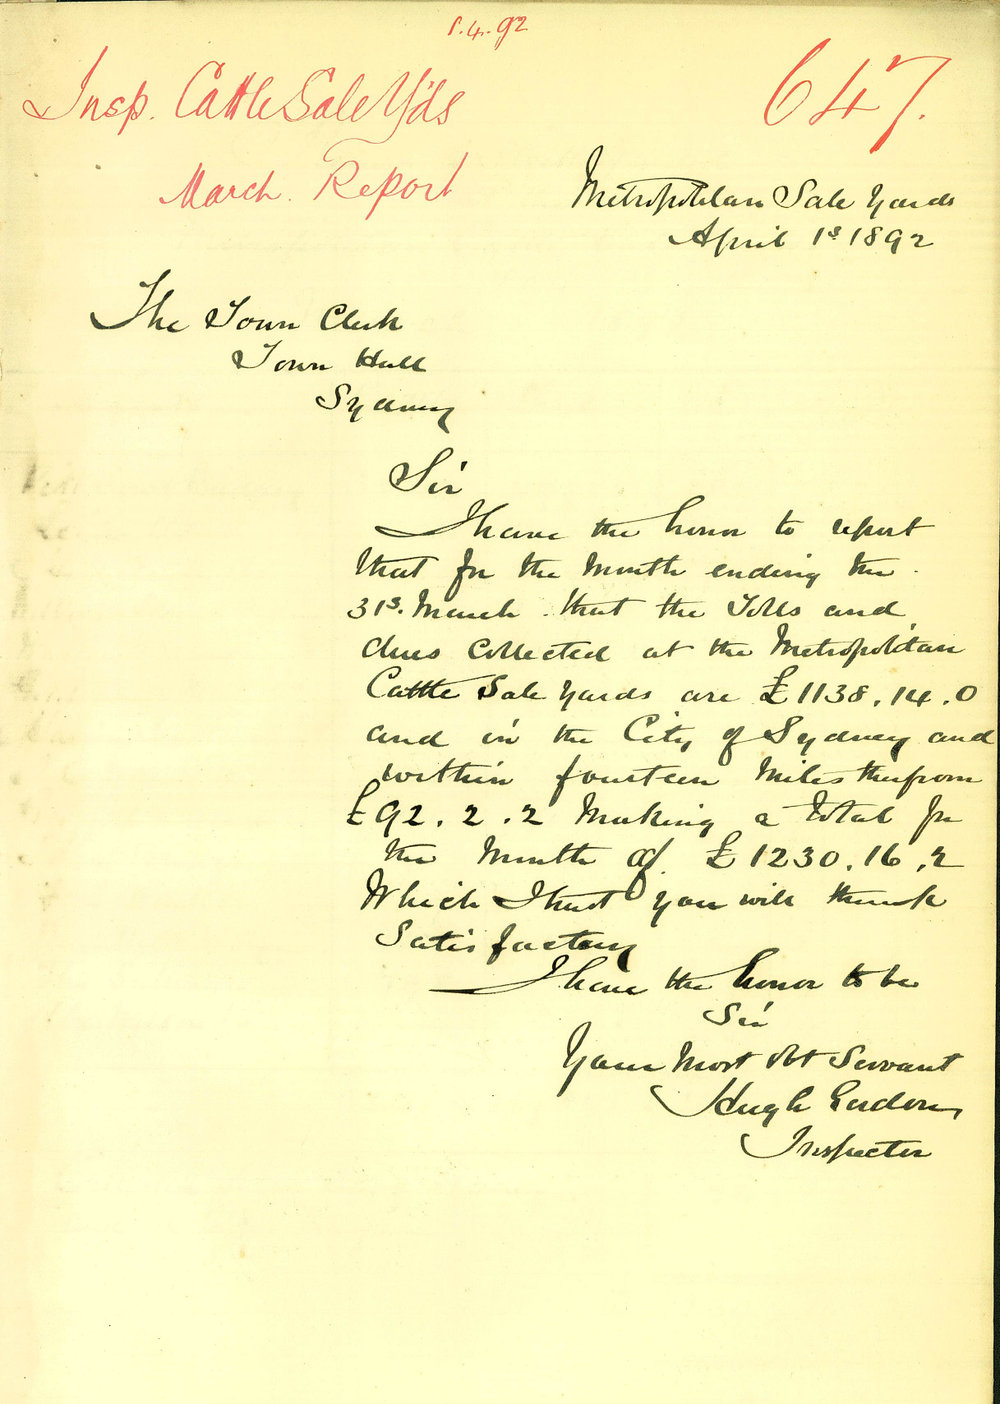 1.4.92
Insp. Cattle Sale Y'ds
647.
March. Report
Metropolitan Sale Yards
April 1s 1892
The Town Clerk
Town Hall
Sydney
Sir
I have the honor to report
that for the Month ending the
31s. March. that the Tolls and
dues collected at the Metropolitan
Cattle Sale Yards are £1138.14.0
and in the City of Sydney and
within fourteen Miles therefrom
£92.2.2 Making a total for
the Month of. £1230.16.2
Which I trust you will think
Satisfactory
I have the honor to be
Sir
Your Most Obt Servant
Hugh
Inspector